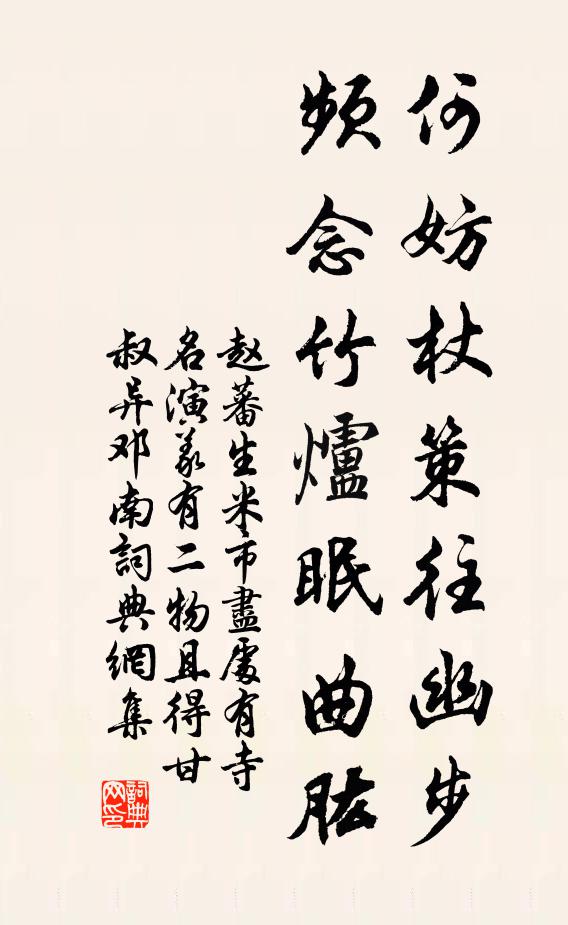 何妨杖策往幽步
频念竹爐眠曲肱
赵蕃生米市盡處有寺
名演義有二物且得甘
叔异邓南詞典網集
詞典网印